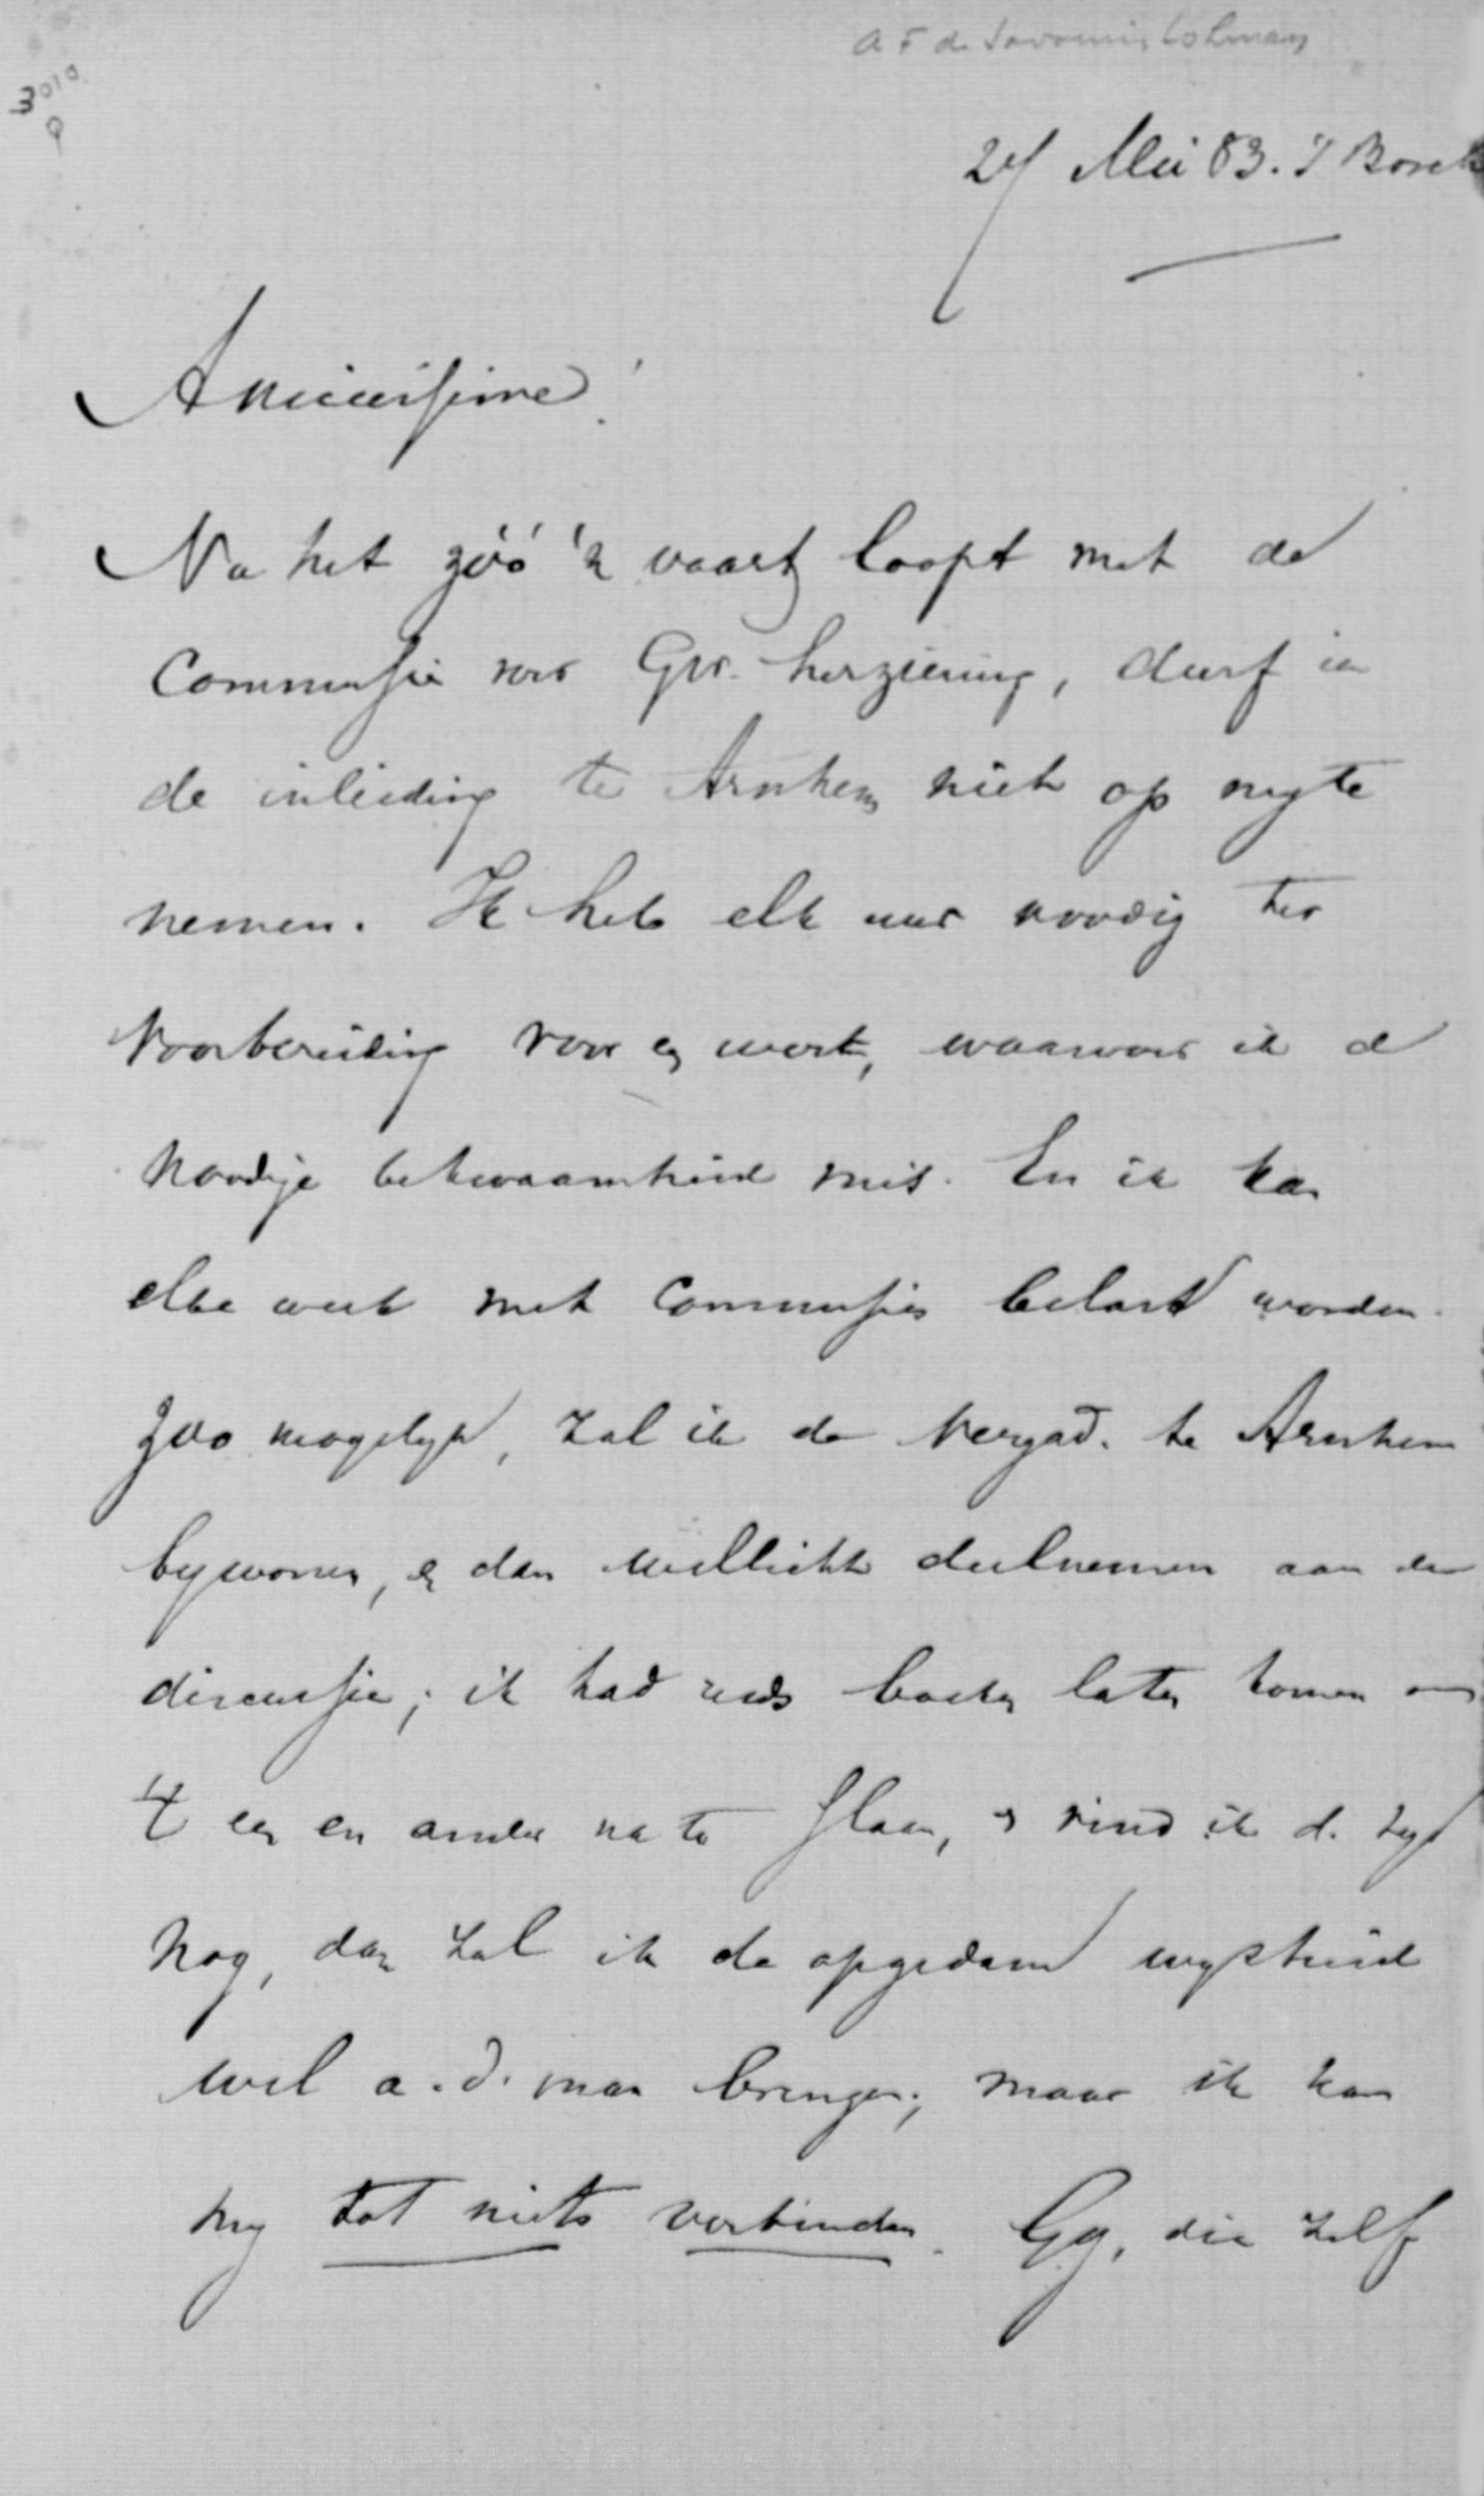 A F de Savornin Lohman
3010
24 Mei 83. 's Bosch
Amicissime!
Nu het zóó 'n vaart loopt met de
Commissie voor Grw. herziening, durf ik
de inleiding te Arnhem niet op mij te
nemen. Ik heb elk uur noodig ter
Voorbereiding voor een werk, waarvoor ik de
noodige bekwaamheid mis. En ik kan
elke week met Commissies belast worden.
Zoo mogelijk, zal ik de Vergad. te Arnhem
bijwonen, en dan wellicht deelnemen aan de
discussie; ik had reeds boeken laten komen om
't een en ander na te slaan, en vind ik de tijd
nog, dan zal ik de opgedane wijsheid
wel a. d. man brengen; maar ik kan
mij tot niets verbinden. Gij, die zelf